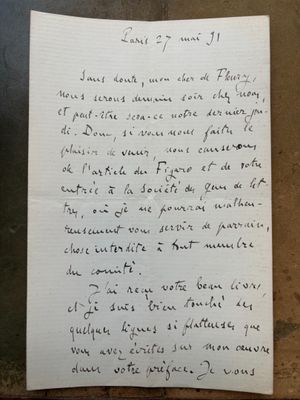 Paris 27 mai 91
Sans doute, mon cher de Fleury,
nous serons demain soir chez nous,
et peut-être sera-ce notre dernier jeu-
di. Donc, si vous nous faites le
plaisir de venir, nous causerons
de l'article du Figaro et de votre
entrée à la Société des gens de let-
tres, où je ne pourrai malheu-
reusement vous servir de parrain,
chose interdite à tout membre
du comité.
J'ai reçu votre beau livre,
et je suis bien touché des
quelques lignes si flatteuses que
vous avez écrites sur mon œuvre
dans votre préface. Je vous